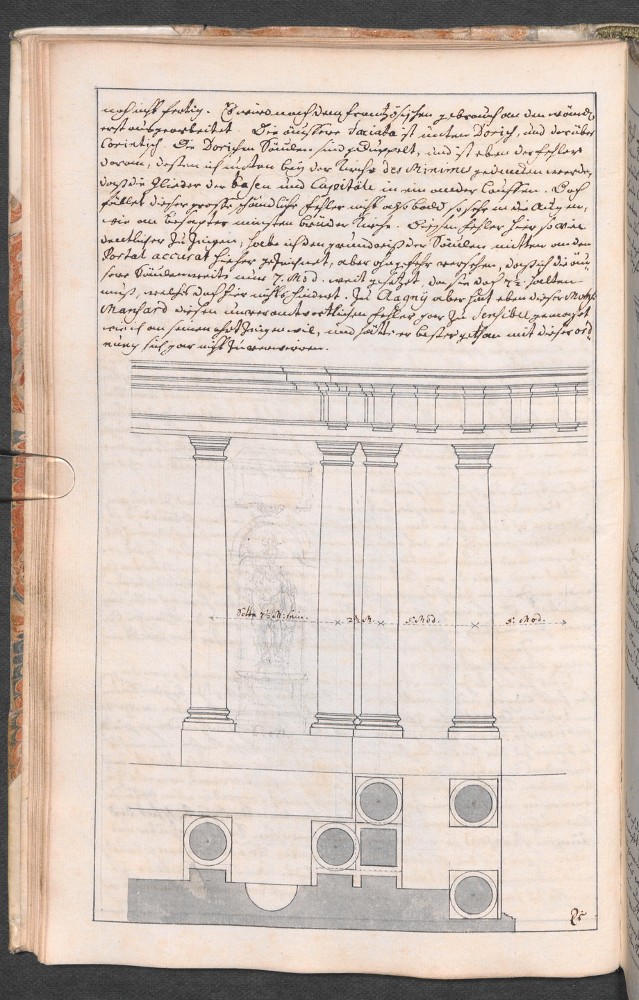 noch nicht fertig. Es wird nach dem frantzösischen gebrauch an den wänden
erst ausgearbeitet. Die äussere Faciata ist unten Dorisch, und darüber
Corintisch. Die Dorischen Säulen sind geduppelt, und ist eben der fehler
daran, dessen ich unten bey der Kirche des Minimes gedencken werde,
daß die Glieder der Basen und Capitäle in ein ander lauffen. Doch
fället dieser grosse schändliche fehler nicht alsbald so sehr in die Augen,
wie an besagter minimen brüder Kirche. Diesen fehler hier so viel
deutlicher zu zeigen, habe ich den grundriß der Säulen mitten an dem
Portal accurat hieher gezeichnet, aber ohngefehr versehen, daß ich die äu-
sere Säulenweite nur 7. Mod. weit gesetzet, da sie doch 7½ halten
muß, welches doch hier nichts hindert. Zu Clagny aber hat eben dieser
Manßard diesen unverantwortlichen fehler gar zu sensibel gemacht
wie ich an seinem ort zeigen wil, und hätte er besser gethan mit dieser ord-
nung sich gar nicht zu verwirren.
Solte 7½ M. sein.
2½ M.
5. Mod.
5. Mod.